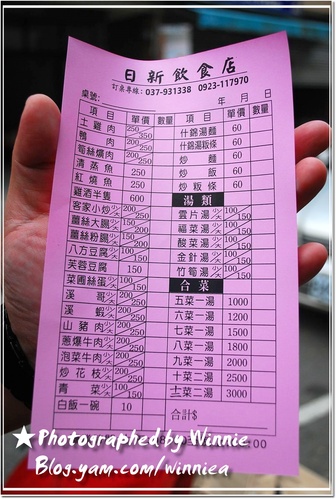 日新飲食店
訂桌專線：037-931338 0923-117970
桌號： 年 月 日
項目 單價 數量 項目 單價 數量
土雞肉 250 350 什錦湯麵 60
鴨肉 200 250 什錦湯粄條 60
筍絲爌肉 200 250 炒麵 60
清蒸魚 250 炒飯 60
紅燒魚 250 炒粄條 60
雞酒半隻 600 湯類
客家小炒 小 大 200 250 雲片湯 小 大 100 150
薑絲大腸 小 大 200 福菜湯 小 大 100 150
薑絲粉腸 小 大 200 酸菜湯 小 大 100 150
八方豆腐 小 大 100 150 金針湯 小 大 100 150
芙蓉豆腐 150 竹筍湯 小 大 100 150
菜圃絲蛋 小 大 100 150 合菜
溪哥 小 大 200 250 五菜一湯 1000
溪蝦 小 大 200 250 六菜一湯 1200
山豬肉 小 大 200 250 七菜一湯 1500
蔥爆牛肉 小 大 200 250 八菜一湯 1800
泡菜牛肉 小 大 200 250 九菜一湯 2000
炒花枝 小 大 200 250 十菜二湯 2500
青菜 小 大 100 150 十二菜二湯 3000
白飯一碗 10 合計$
★Photographed by Winnie
Blog.yam.com/winniea